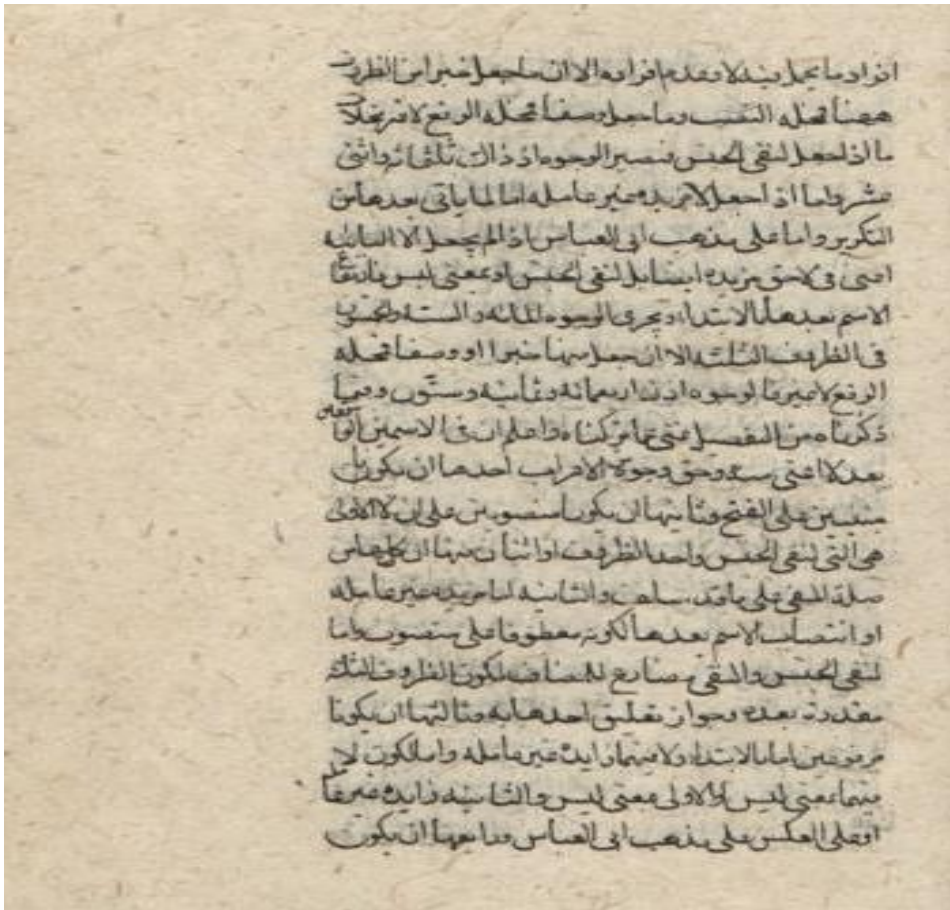 افراد ما يحمل فيه لا وعدم افراده الا ان ما جعل خبرا من الظروف
ههنا فمحله النصب وما جعل وصفا فمحله الرفع لا غير بخلاف
ما اذا جعل لنفى الجنس فتصير الوجوه اذ ذاك ثلثمائة واثنى
عشر واما اذا جعل لا مزيدة غير عامله اما لما ياتى بعدها من
التكرير واما على مذهب ابى العباس اذا لم يجعل الا الثانيه
اعنى فى لاحق مزيده ايضا بل لنفى الجنس او بمعنى ليس فارتفاع
الاسم بعدها بالابتداء ويجرى الوجوه المائه والسته والخمسون
فى الظروف الثلثه الا ان جعل منها خبرا او وصفا فمحله
الرفع لا غير فالوجوه اذن اربعمائه وثمانيه وستون وفيما
ذكرناه من التفصيل غنى عما تركناه واعلم ان فى الاسمين الواقعين
بعد لا اعنى سه وحق وجوه الاعراب احدها ان يكونا
مبنيين على الفتح وثانيها ان يكونا منصوبين على ان لا الاولى
هى التى لنفى الجنس واحد الظروف او اثنان منها او كلها من
صلة المنفى على ما قد سلف والثانيه اما مزيده غير عامله
او انتصاب الاسم بعدها لكونه معطوفا على منصوب واما
لنفى الجنس والمنفى مضارع للمضاف لكون الظروف الثلثه
مقدرة بعده وجواز تعليق احدها به وثالثها ان يكونا
مرفوعين اما بالابتداء ولا فيهما زايدة غير عامله واما لكون لا
فيهما بمعنى ليس او الاولى بمعنى ليس والثانيه زايده غير عاملة
او على العكس على مذهب ابى العباس ورابعها ان يكون